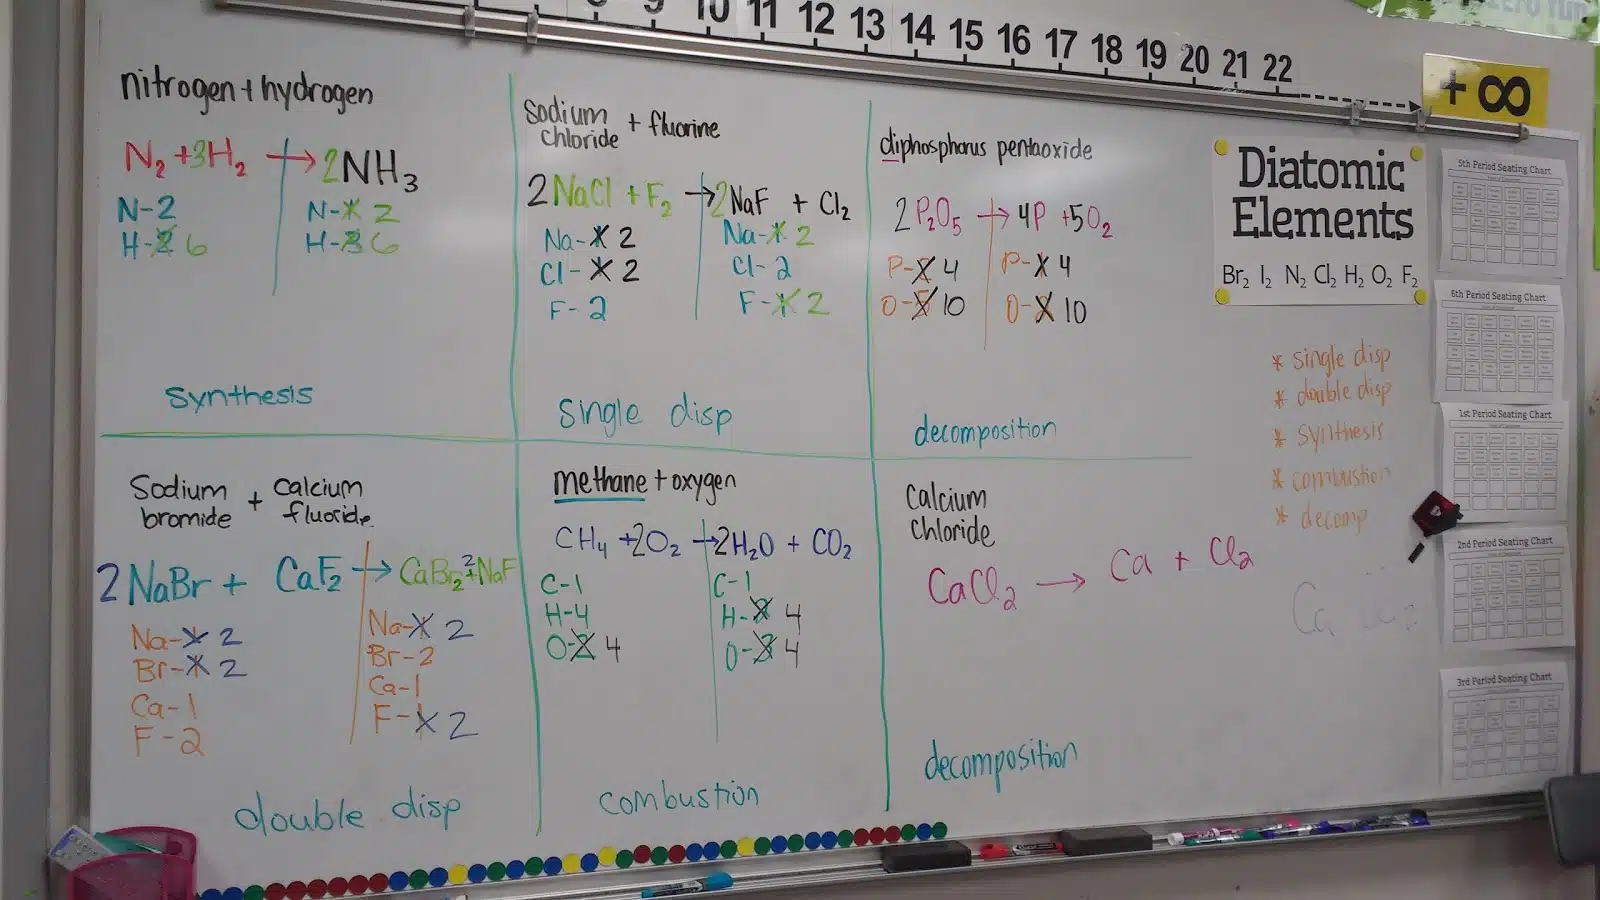 8 9 10 11 12 13 14 15 16 17 18 19 20 21 22
+ ∞
nitrogen + hydrogen
N₂ + 3H₂ → 2NH₃
N-2
H-2 6
N-1 2
H-3 6
Synthesis
Sodium chloride + fluorine
2NaCl + F₂ → 2NaF + Cl₂
Na-1 2
Cl-1 2
F-2
Na-1 2
Cl-2
F-1 2
Single disp
diphosphorus pentaoxide
2P₂O₅ → 4P + 5O₂
P-2 4
O-5 10
P-1 4
O-2 10
decomposition
Diatomic
Elements
Br₂ I₂ N₂ Cl₂ H₂ O₂ F₂
* single disp
* double disp
* synthesis
* combustion
* decomp
Sodium bromide + Calcium fluoride
2NaBr + CaF₂ → CaBr₂ + 2NaF
Na-1 2
Br-1 2
Ca-1
F-2
Na-1 2
Br-2
Ca-1
F-1 2
double disp
methane + oxygen
CH₄ + 2O₂ → 2H₂O + CO₂
C-1
H-4
O-2 4
C-1
H-2 4
O-3 4
combustion
Calcium
Chloride
CaCl₂ → Ca + Cl₂
decomposition
5th Period Seating Chart
6th Period Seating Chart
1st Period Seating Chart
2nd Period Seating Chart
3rd Period Seating Chart